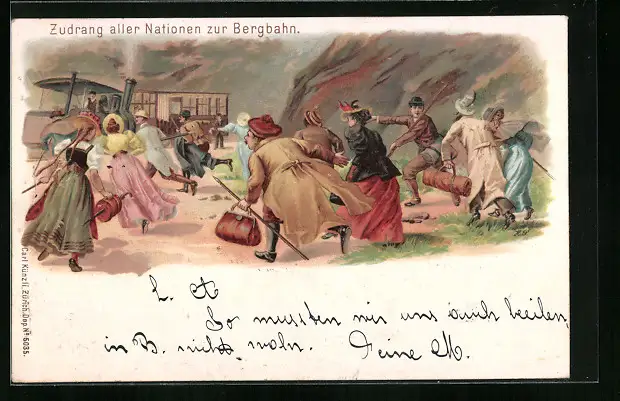 Zudrang aller Nationen zur Bergbahn.
Carl Künzli, Zürich, Dep. No 5035.
L. A
So mussten wir uns auch beeilen,
in B. nicht wahr. Deine M.